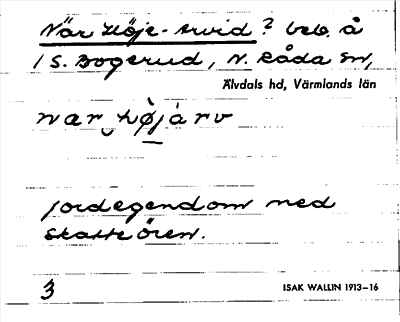 När Höje-Arvid? beb. å
i S. Bogerud, N. Råda sn,
Älvdals hd, Värmlands län
jordegendom med
skatteören.
3
ISAK WALLIN 1913–16